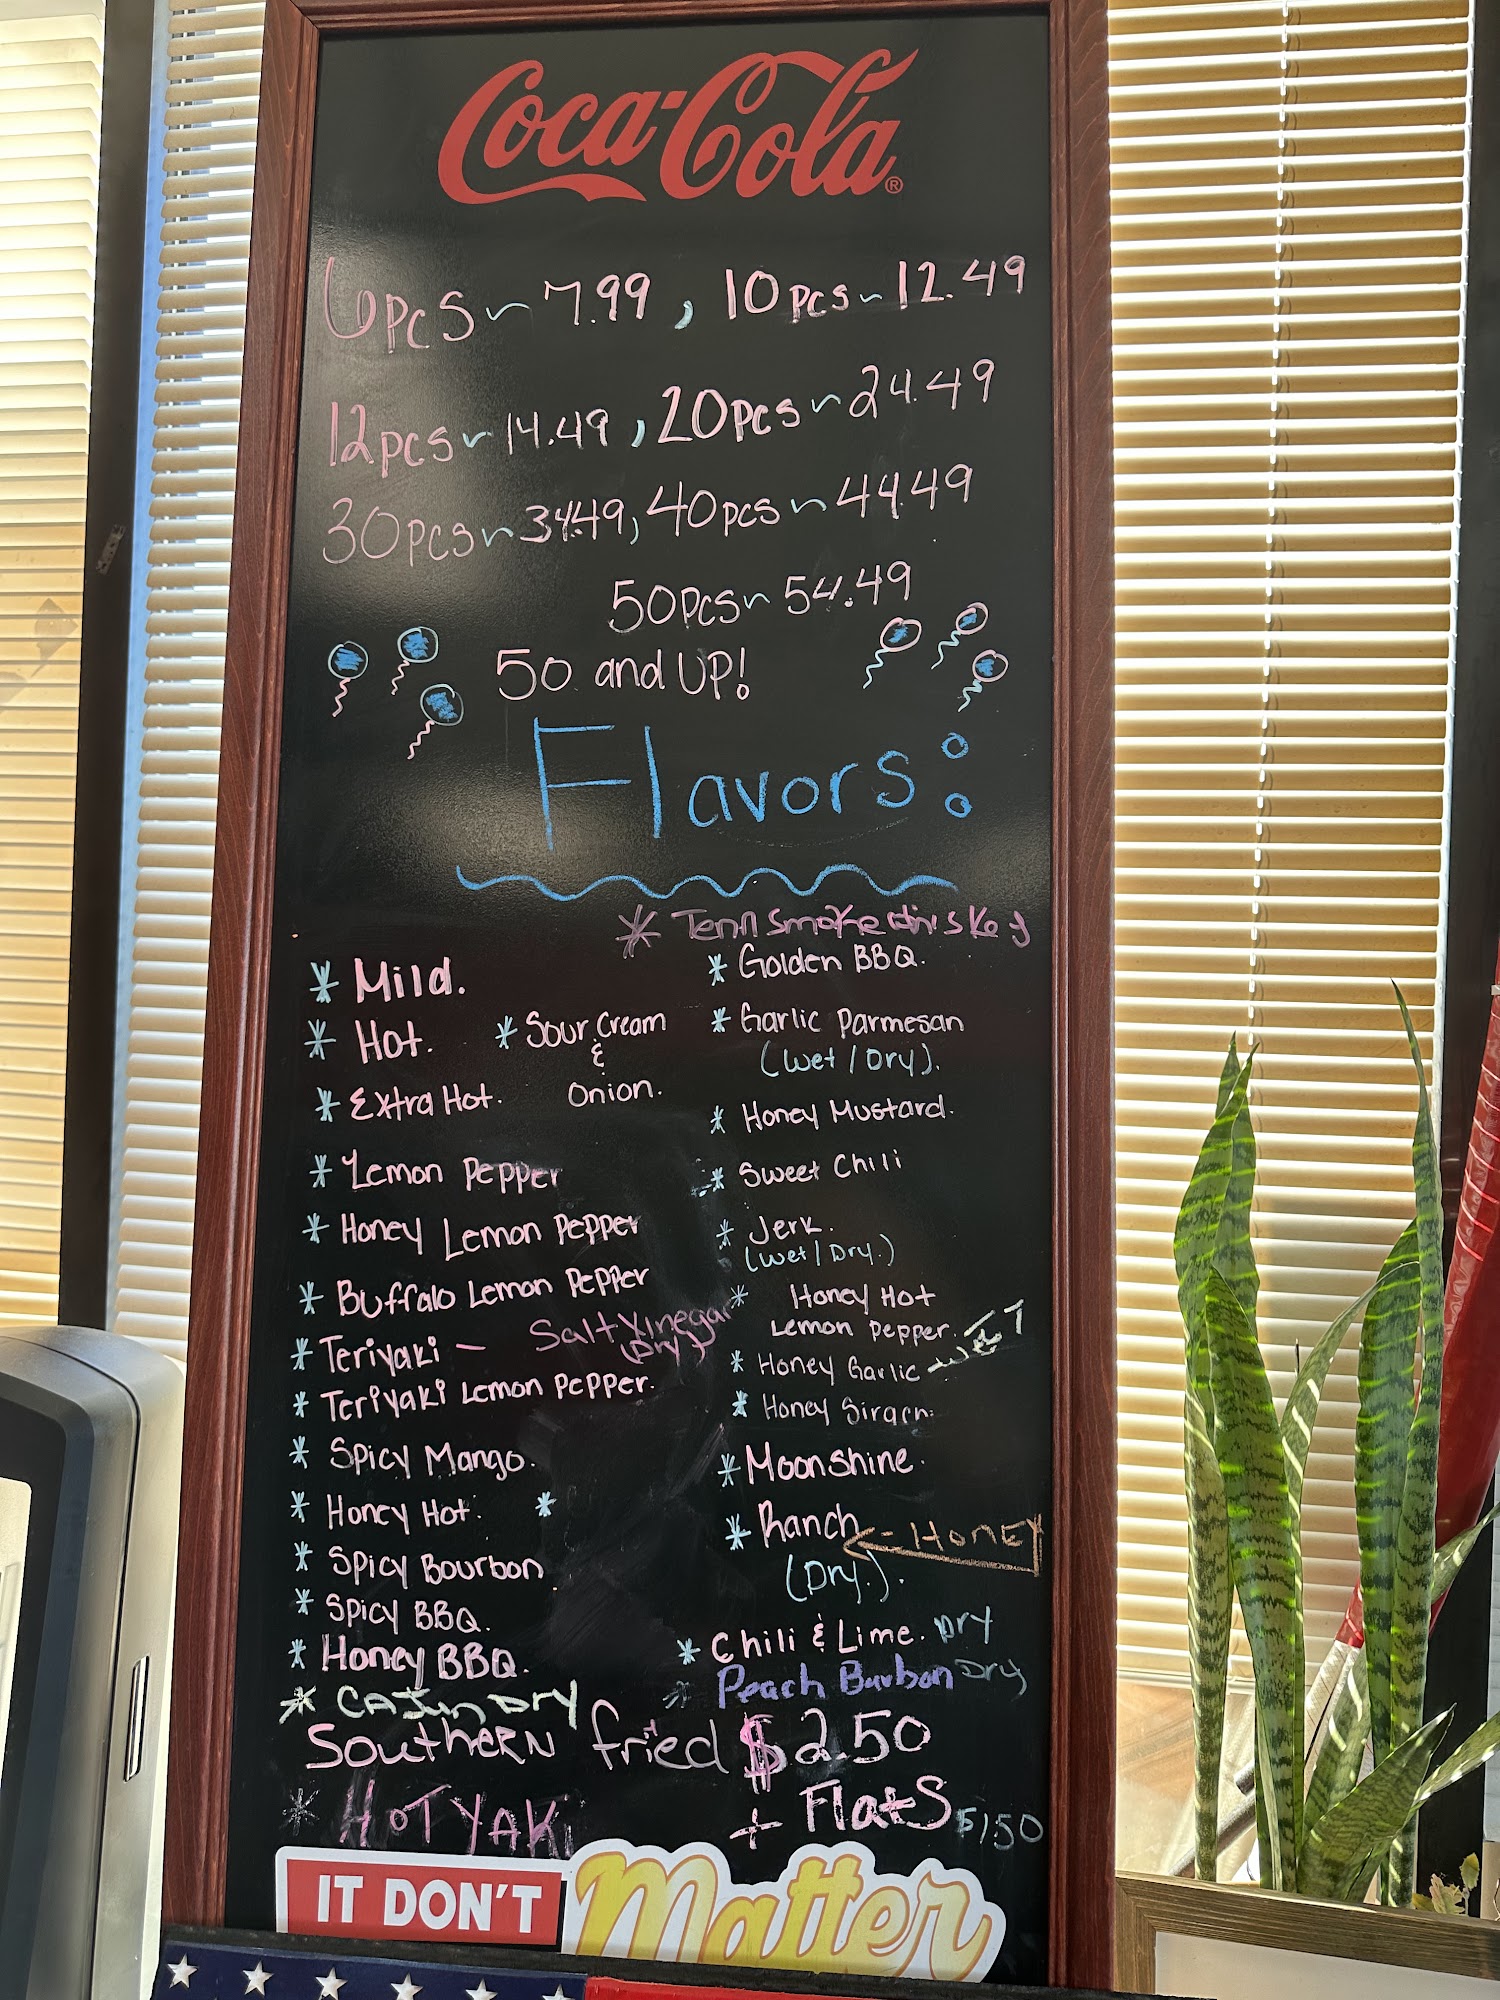 Coca-Cola®
6pcs ~ 7.99, 10pcs ~ 12.49
12pcs ~ 14.49, 20pcs ~ 24.49
30pcs ~ 34.49, 40pcs ~ 44.49
50pcs ~ 54.49
50 and UP!
Flavors:
* Mild.
* Hot.
* Sour Cream
&
Onion.
* Extra Hot.
* Lemon Pepper
* Honey Lemon Pepper
* Buffalo Lemon Pepper
* Teriyaki –
Salt Vinegar
(Dry)
* Teriyaki Lemon Pepper.
* Spicy Mango.
* Honey Hot.
*
* Spicy Bourbon
* Spicy BBQ.
* Honey BBQ.
* CAJUN DRY
* Tenn Smoke Whiskey
* Golden BBQ.
* Garlic Parmesan
(Wet / Dry).
* Honey Mustard.
* Sweet Chili
* Jerk.
(Wet / Dry.)
* Honey Hot
Lemon Pepper.
* Honey Garlic – WET
* Honey Sirach
* Moonshine.
* Ranch <- HONEY
(Dry.).
* Chili & Lime. Dry
* Peach Burbon Dry
Southern fried $2.50
* HOT YAKi
+ Flats $1.50
IT DON'T Matter